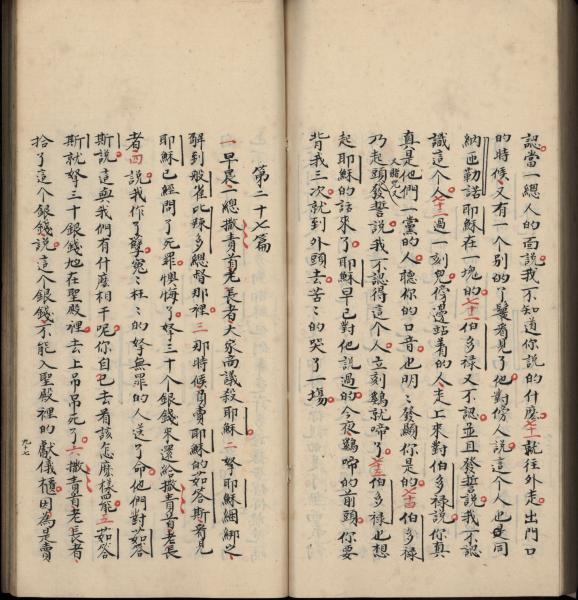 認當一總人的面說我不知道你說的什麼七十一就往外走出門口
的時候又有一个别的丫鬟看見了他對傍人說這个人也是同
納匝勒話耶穌在一塊的七十二伯多祿又不認並且發誓說我不認
識這个人七十三過一刻兒傍邊站着的人走上來對伯多祿說你真
真是他們一黨的人聽你的口音也明〻發顯你是的七十四伯多祿
乃起頭發誓說我不認得這个人立刻鷄就啼了七十五伯多祿也想
起耶穌的話來了耶穌早已對他說過的今夜鷄啼的前頭你要
背我三次就到外頭去苦〻的哭了一塲
第二十七篇
一早晨一總撒責首老長者大衆商議殺耶穌二拏耶穌綑綁之
解到般雀比辣多總督那裡三那時候負賣耶穌的茹答斯看見
耶穌已經問了死罪懊悔了拏三十个銀錢來還給撒責首老長
者四說我作了孽寃〻枉〻的拏無罪的人送了命他們對茹答
斯說這與我們有什麼相干呢你自己去看該怎麼樣罷五茹答
斯就拏三十銀錢地在聖殿裡去上吊吊死了六撒責首老長者
拾了這个銀錢說這个銀錢不能入聖殿裡的獻儀櫃因為是賣
九七